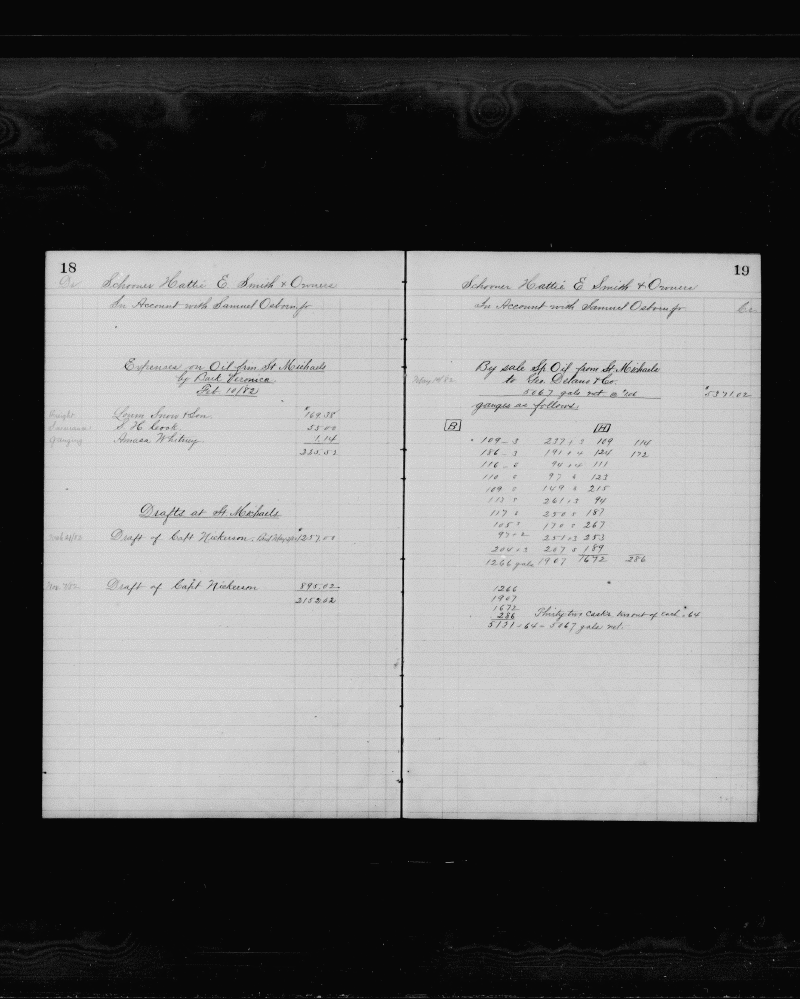 18
Dr Schooner Hattie E. Smith & Owners
In Account with Samuel Osborn jr
Expenses on Oil from St Michaels
by Bark Veronica
Feb 10/82
Freight Snow & Son $169.38
Insurance S. H. Cook 55.00
Gauging Amasa Whitney 1.14
Drafts at St Michaels
Draft of Capt Nickerson
Draft of Capt Nickerson 895.02
2152.02
19
Schooner Hattie E Smith & Owners
In Account with Samuel Osborn jr. Cr
By sale Sp Oil from St Michaels
to Geo. Delano & Co.
5067 gals net @ $5371.02
gauges as follows.
109 - 3 237 109 114
186 - 3 191 124 172
116 - 0 94 111
110 97 123
109 149 215
117 261 94
117 250 187
105 170 267
97 251 253
204 207 189
1266 gals 1907 1672 286
1266
1907
1672
286 Thirty two casks, two out of each, 64
5131 - 64 = 5067 gals net.